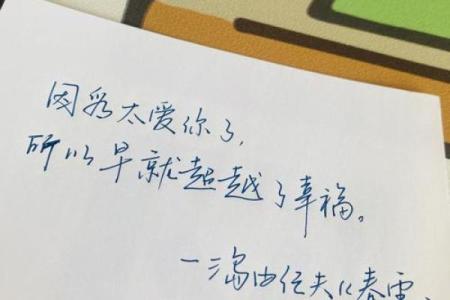 因为太爱你了，
所以早就超越了幸福。
—三岛由纪夫《春雪